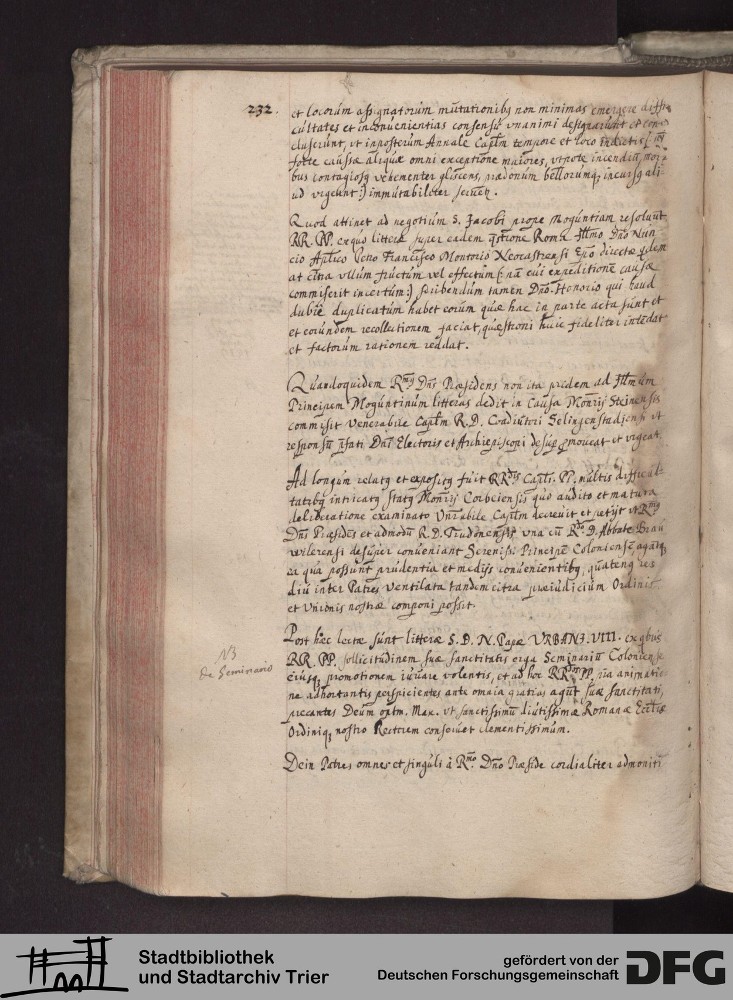 232.
et locorum assignatorum mutationibq non minimas emergere diffi-
cultates et inconuenientias consensu vnanimi designarunt et con-
cluserunt, vt inposterum Annale Caplm tempore et loco indictis (: nj
forte caussæ aliquæ omni exceptione maiores, vtpote incendiũ, mor-
bus contagiosq vehementer gliscens, prædonum bellorumq, incursq ali-
ud vrgeant:) immutabiliter seruetr.
Quod attinet ad negotium S. Jacobi prope Moguntiam resoluũt
RR. PP. ex quo litteræ super eadem qstione Roma Illmo Dno Nun-
cio Aplico Petro Francisco Montorio Neocastrensi Epo directæ qdem
at citra vllum fructum vel effectum (: nã cui expeditionẽ causæ
commiserit incertum:) scribendum tamen Dno Honorio qui haud
dubie duplicatum habet eorum quæ hac in parte acta sunt et
et eorundem recollectionem faciat, quæstioni huic fideliter intẽdat
et factorum rationem reddat.
Quandoquidem Rmq Dns Præsidens non ita pridem ad Illmum
Principem Moguntinum litteras dedit in Causa Monrij Steinensis
commisit venerabile Caplm R. D. Coadiutori Selingenstadiensi vt
responsũ pfati Dni Electoris et Archiepiscopi desup pmoueat et vrgeat.
Ad longum relatq et expositq fuit RRdis Capli. PP. multis difficul-
tatibq intricatq statq Monrij Corbeiensis quo audito et matura
deliberatione examinato Vnrabile Caplm decreuit et petijt vt Rmq
Dns Præsidens et admodũ R. D. Prudonensis vna cũ Rdo D. Abbate Brau
wilerensi desuper conueniant Sereniss: Principẽ Coloniensẽ, agatq,
ea qua possunt prudentia et medijs conuenientibq, quatenq res
diu inter Patres ventilata tandem citra præiudicium Ordinis
et Vnionis nostræ componi possit.
NB
de Seminario
Post hæc lectæ sunt litteræ S. D. N. Papæ VRBANI. VIII. ex qbus
RR. PP. sollicitudinem suæ sanctitatis erga Seminariũ Coloniense
eiusq, promotionem iuuare volentis, et ad hoc RRdos PP. adhortantis perspicientes ante omnia gratias agũt suæ sanctitati,
precantes Deum optm. Max. vt sanctissimũ diutissimæ Romanæ Eccliæ
Ordiniq, nostro Rectorem conseruet clementissimum.
Dein Patres omnes et singuli à Rmo. Dno Præside cordialiter admoniti
Stadtbibliothek
und Stadtarchiv Trier
gefördert von der
Deutschen Forschungsgemeinschaft
DFG